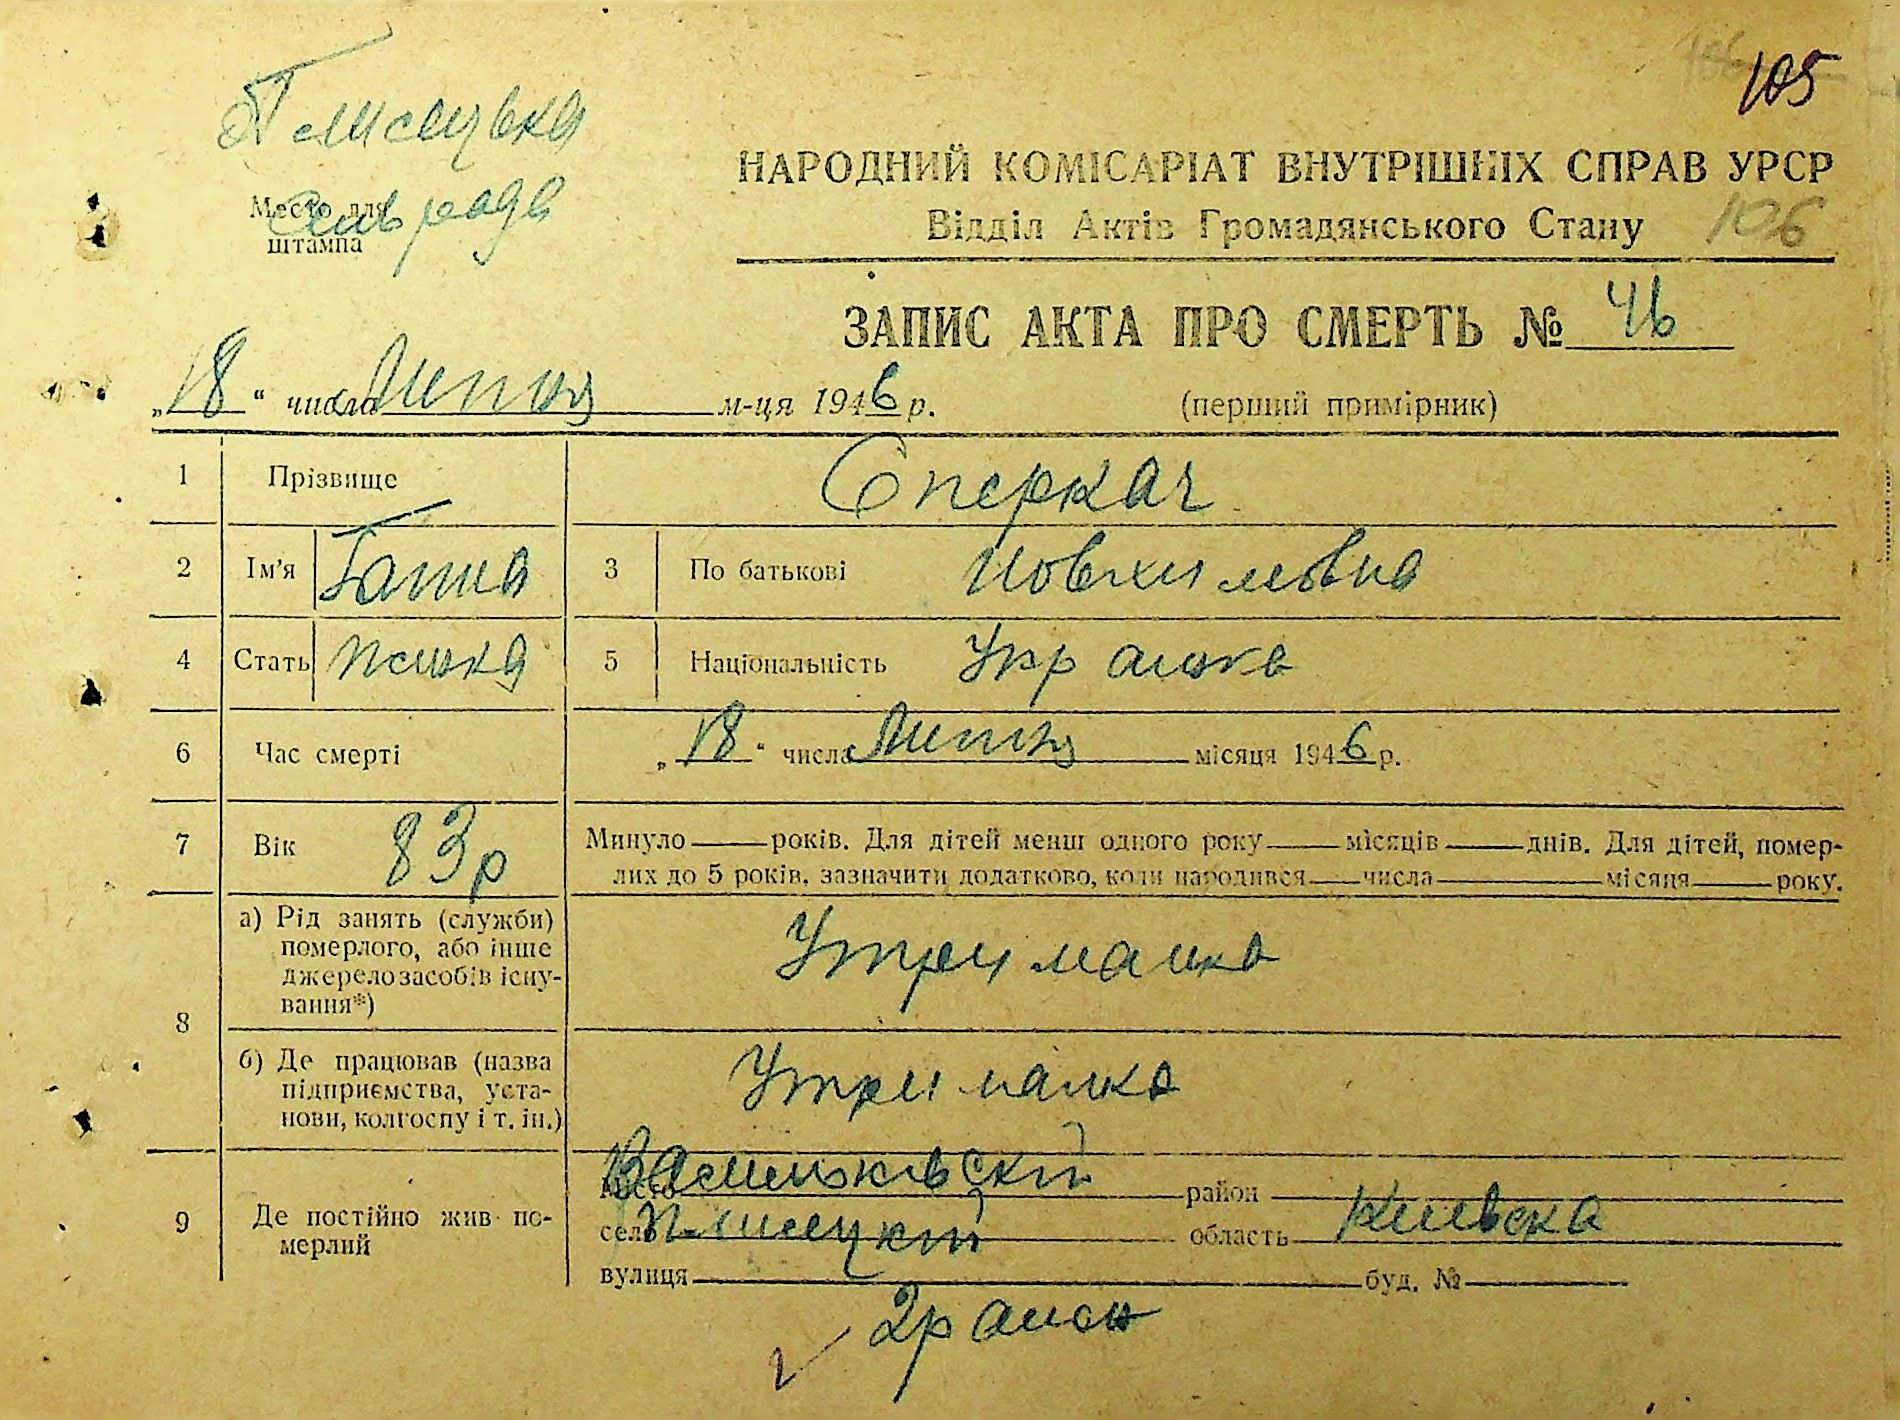 105
Плисецька
НАРОДНИЙ КОМІСАРІАТ ВНУТРІШНІХ СПРАВ УРСР
Место для
штампа
сільрада
Відділ Актів Громадянського Стану 106
ЗАПИС АКТА ПРО СМЕРТЬ № 46
„18“ числа Липня м-ця 1946 р. (перший примірник)
1 Прізвище Сперкач
2 Ім'я Ганна 3 По батькові
4 Стать жінка 5 Національність Українка
6 Час смерті „18“ числа Липня місяця 1946 р.
7 Вік 83 р Минуло років. Для дітей менш одного року місяців днів. Для дітей, помер-
лих до 5 років, зазначити додатково, коли народився числа місяця року.
8 а) Рід занять (служби)
померлого, або інше
джерело засобів існу-
вання*)
Утриманка
б) Де працював (назва
підприємства, уста-
нови, колгоспу і т. ін.)
Утриманка
9 Де постійно жив по-
мерлий
місто Васильківський район
село Плисецкий область Киевска
вулиця буд. №